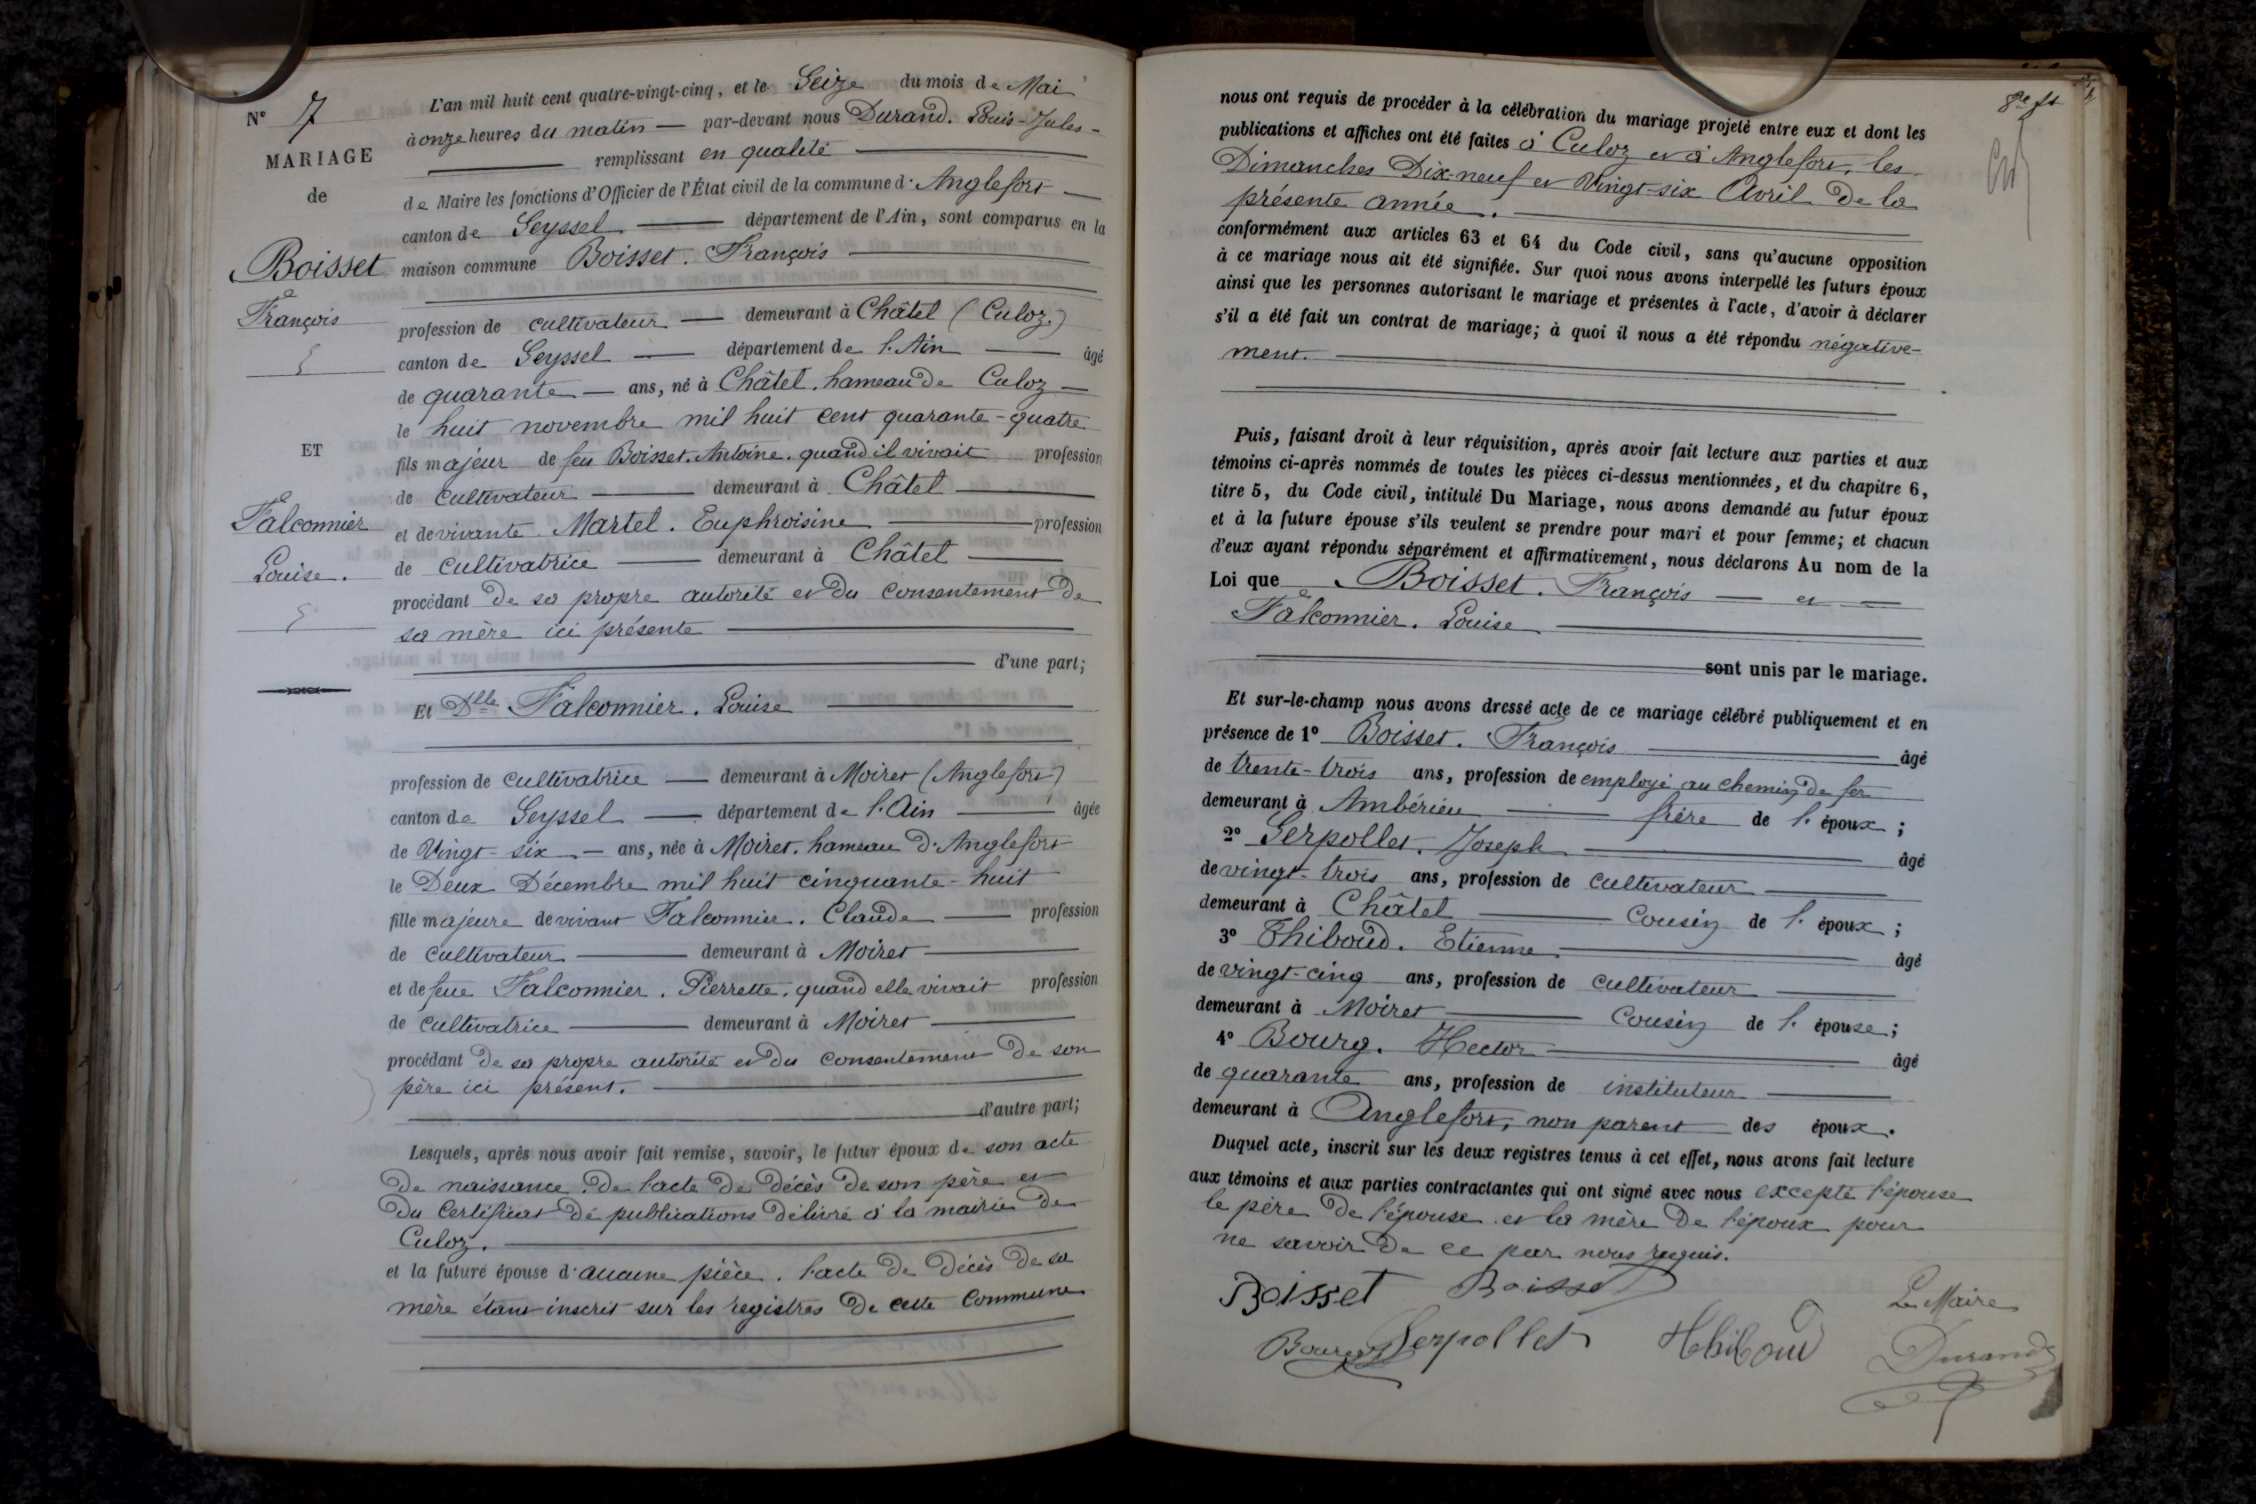 N° 7
MARIAGE
de
Boisset
François
ET
Falconnier
Louise.
L'an mil huit cent quatre-vingt-cinq, et le Seize du mois de Mai
à onze heures du matin — par-devant nous Durand. Louis-Jules-
remplissant en qualité
de Maire les fonctions d'Officier de l'État civil de la commune d'Anglefort
canton de Seyssel département de l'Ain, sont comparus en la
maison commune Boisset. François
profession de cultivateur demeurant à Châtel (Culoz.)
canton de Seyssel département de l'Ain âgé
de quarante ans, né à Châtel. hameau de Culoz
le huit novembre mil huit cent quarante-quatre
fils majeur de feu Boisset. Antoine. quand il vivait profession
de cultivateur demeurant à Châtel
et de vivante Martel. Euphroisine profession
de cultivatrice demeurant à Châtel
procédant de sa propre autorité et du consentement de
sa mère ici présente
d'une part;
Et Dlle Falconnier. Louise
profession de cultivatrice demeurant à Moiret (Anglefort)
canton de Seyssel département de l'Ain âgée
de Vingt-six ans, née à Moiret. hameau d'Anglefort
le Deux Décembre mil huit cinquante-huit
fille majeure de vivant Falconnier. Claude profession
de cultivateur demeurant à Moiret
et de feue Falconnier. Pierrette. quand elle vivait profession
de cultivatrice demeurant à Moiret
procédant de sa propre autorité et du consentement de son
père ici présent.
d'autre part;
Lesquels, après nous avoir fait remise, savoir, le futur époux de son acte
de naissance. de l'acte de décès de son père et
du certificat de publications délivré à la mairie de
Culoz.
et la future épouse d'aucune pièce. l'acte de décès de sa
mère étant inscrit sur les registres de cette commune
8e ft
nous ont requis de procéder à la célébration du mariage projeté entre eux et dont les
publications et affiches ont été faites à Culoz et à Anglefort, les
Dimanches Dix-neuf et Vingt-six Avril de la
présente année.
conformément aux articles 63 et 64 du Code civil, sans qu'aucune opposition
à ce mariage nous ait été signifiée. Sur quoi nous avons interpellé les futurs époux
ainsi que les personnes autorisant le mariage et présentes à l'acte, d'avoir à déclarer
s'il a été fait un contrat de mariage; à quoi il nous a été répondu négative-
ment.
Puis, faisant droit à leur réquisition, après avoir fait lecture aux parties et aux
témoins ci-après nommés de toutes les pièces ci-dessus mentionnées, et du chapitre 6,
titre 5, du Code civil, intitulé Du Mariage, nous avons demandé au futur époux
et à la future épouse s'ils veulent se prendre pour mari et pour femme; et chacun
d'eux ayant répondu séparément et affirmativement, nous déclarons Au nom de la
Loi que Boisset. François — et —
Falconnier. Louise
sont unis par le mariage.
Et sur-le-champ nous avons dressé acte de ce mariage célébré publiquement et en
présence de 1° Boisset. François âgé
de trente-trois ans, profession de employé au chemin de fer
demeurant à Ambérieu frère de l'époux;
2° Serpollet. Joseph âgé
de vingt-trois ans, profession de cultivateur
demeurant à Châtel Cousin de l'époux;
3° Thiboud. Etienne âgé
de vingt-cinq ans, profession de cultivateur
demeurant à Moiret Cousin de l'épouse;
4° Bourg. Hector âgé
de quarante ans, profession de instituteur
demeurant à Anglefort, non parent des époux.
Duquel acte, inscrit sur les deux registres tenus à cet effet, nous avons fait lecture
aux témoins et aux parties contractantes qui ont signé avec nous excepté l'épouse
le père de l'épouse et la mère de l'époux pour
ne savoir de ce par nous requis.
Boisset Boisset
Le Maire
Bourg Serpollet Thiboud Durand